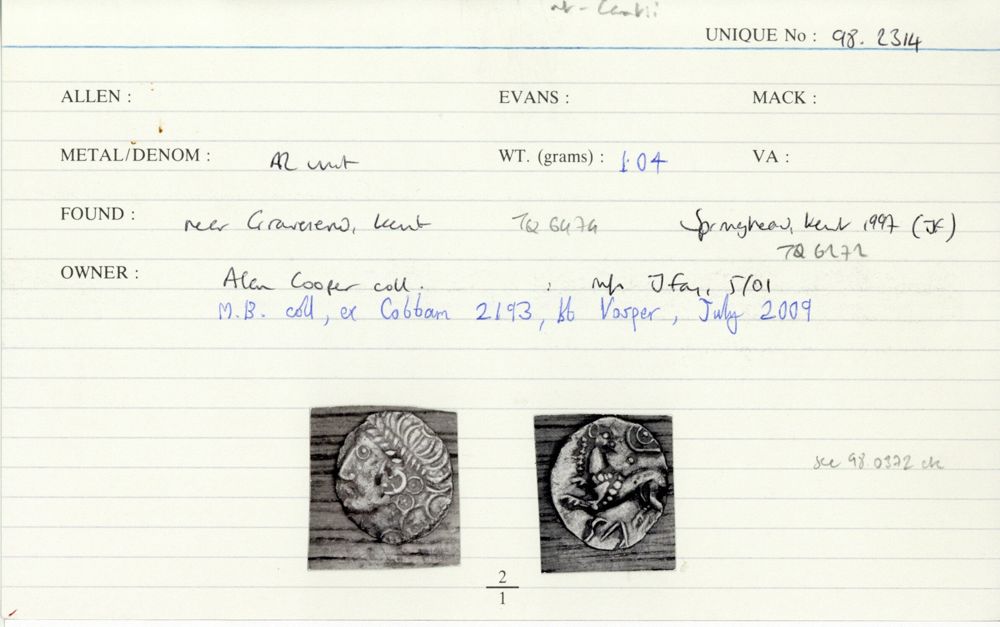 UNIQUE No : 98. 2314
ALLEN : EVANS : MACK :
METAL/DENOM : AR unit WT. (grams) : 1.04 VA :
FOUND : near Gravesend, Kent TQ 6474 Springhead, Kent 1997 (JF)
TQ 6172
OWNER : Alan Cooper coll. ; info J Fay, 5/01
M.B. coll, ex Cobbam 2193, bt Vosper, July 2009
see 98.0372 ck
2
1